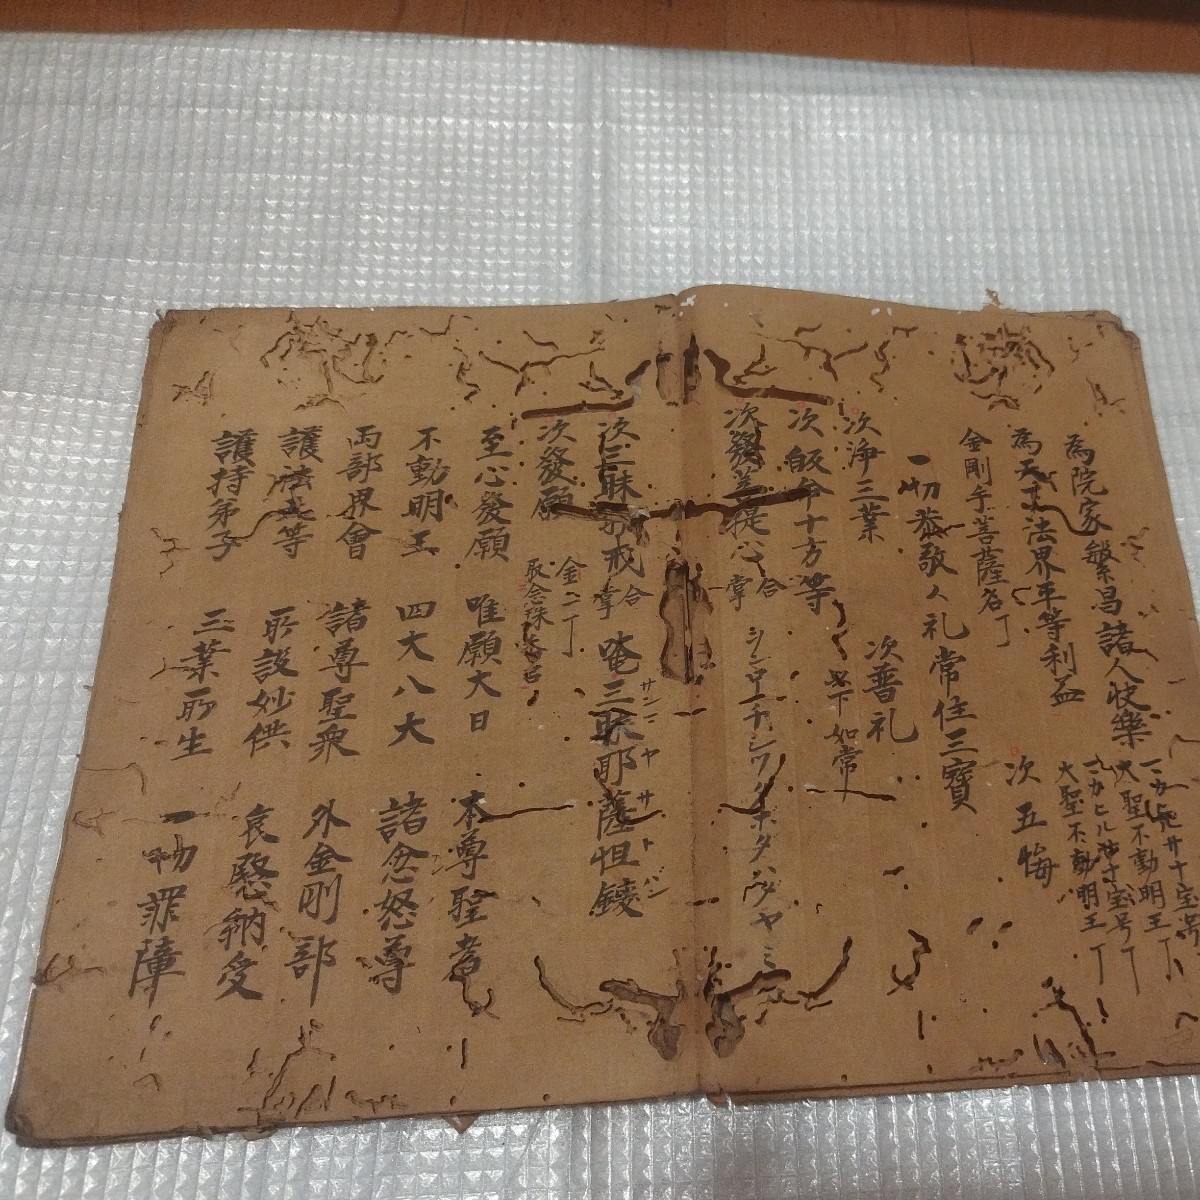 為院家繁昌諸人快樂
大聖不動明王丁
大聖不動明王丁
為天下法界平等利益
金剛手菩薩名丁
次五悔
一切恭敬々礼常住三寶
次淨三業
次普礼
次皈命十方等
以下如常
次發菩提心
合掌
次三昧耶戒
合掌
唵三昧耶薩怛鑁
サンマヤサトバン
次發願
金二丁
取念珠香呂
至心發願 唯願大日 本尊聖者
不動明王 四大八大 諸忿怒尊
両部界會 諸尊聖衆 外金剛部
護法天等 所設妙供 哀愍納受
護持弟子 三業所生 一切罪障